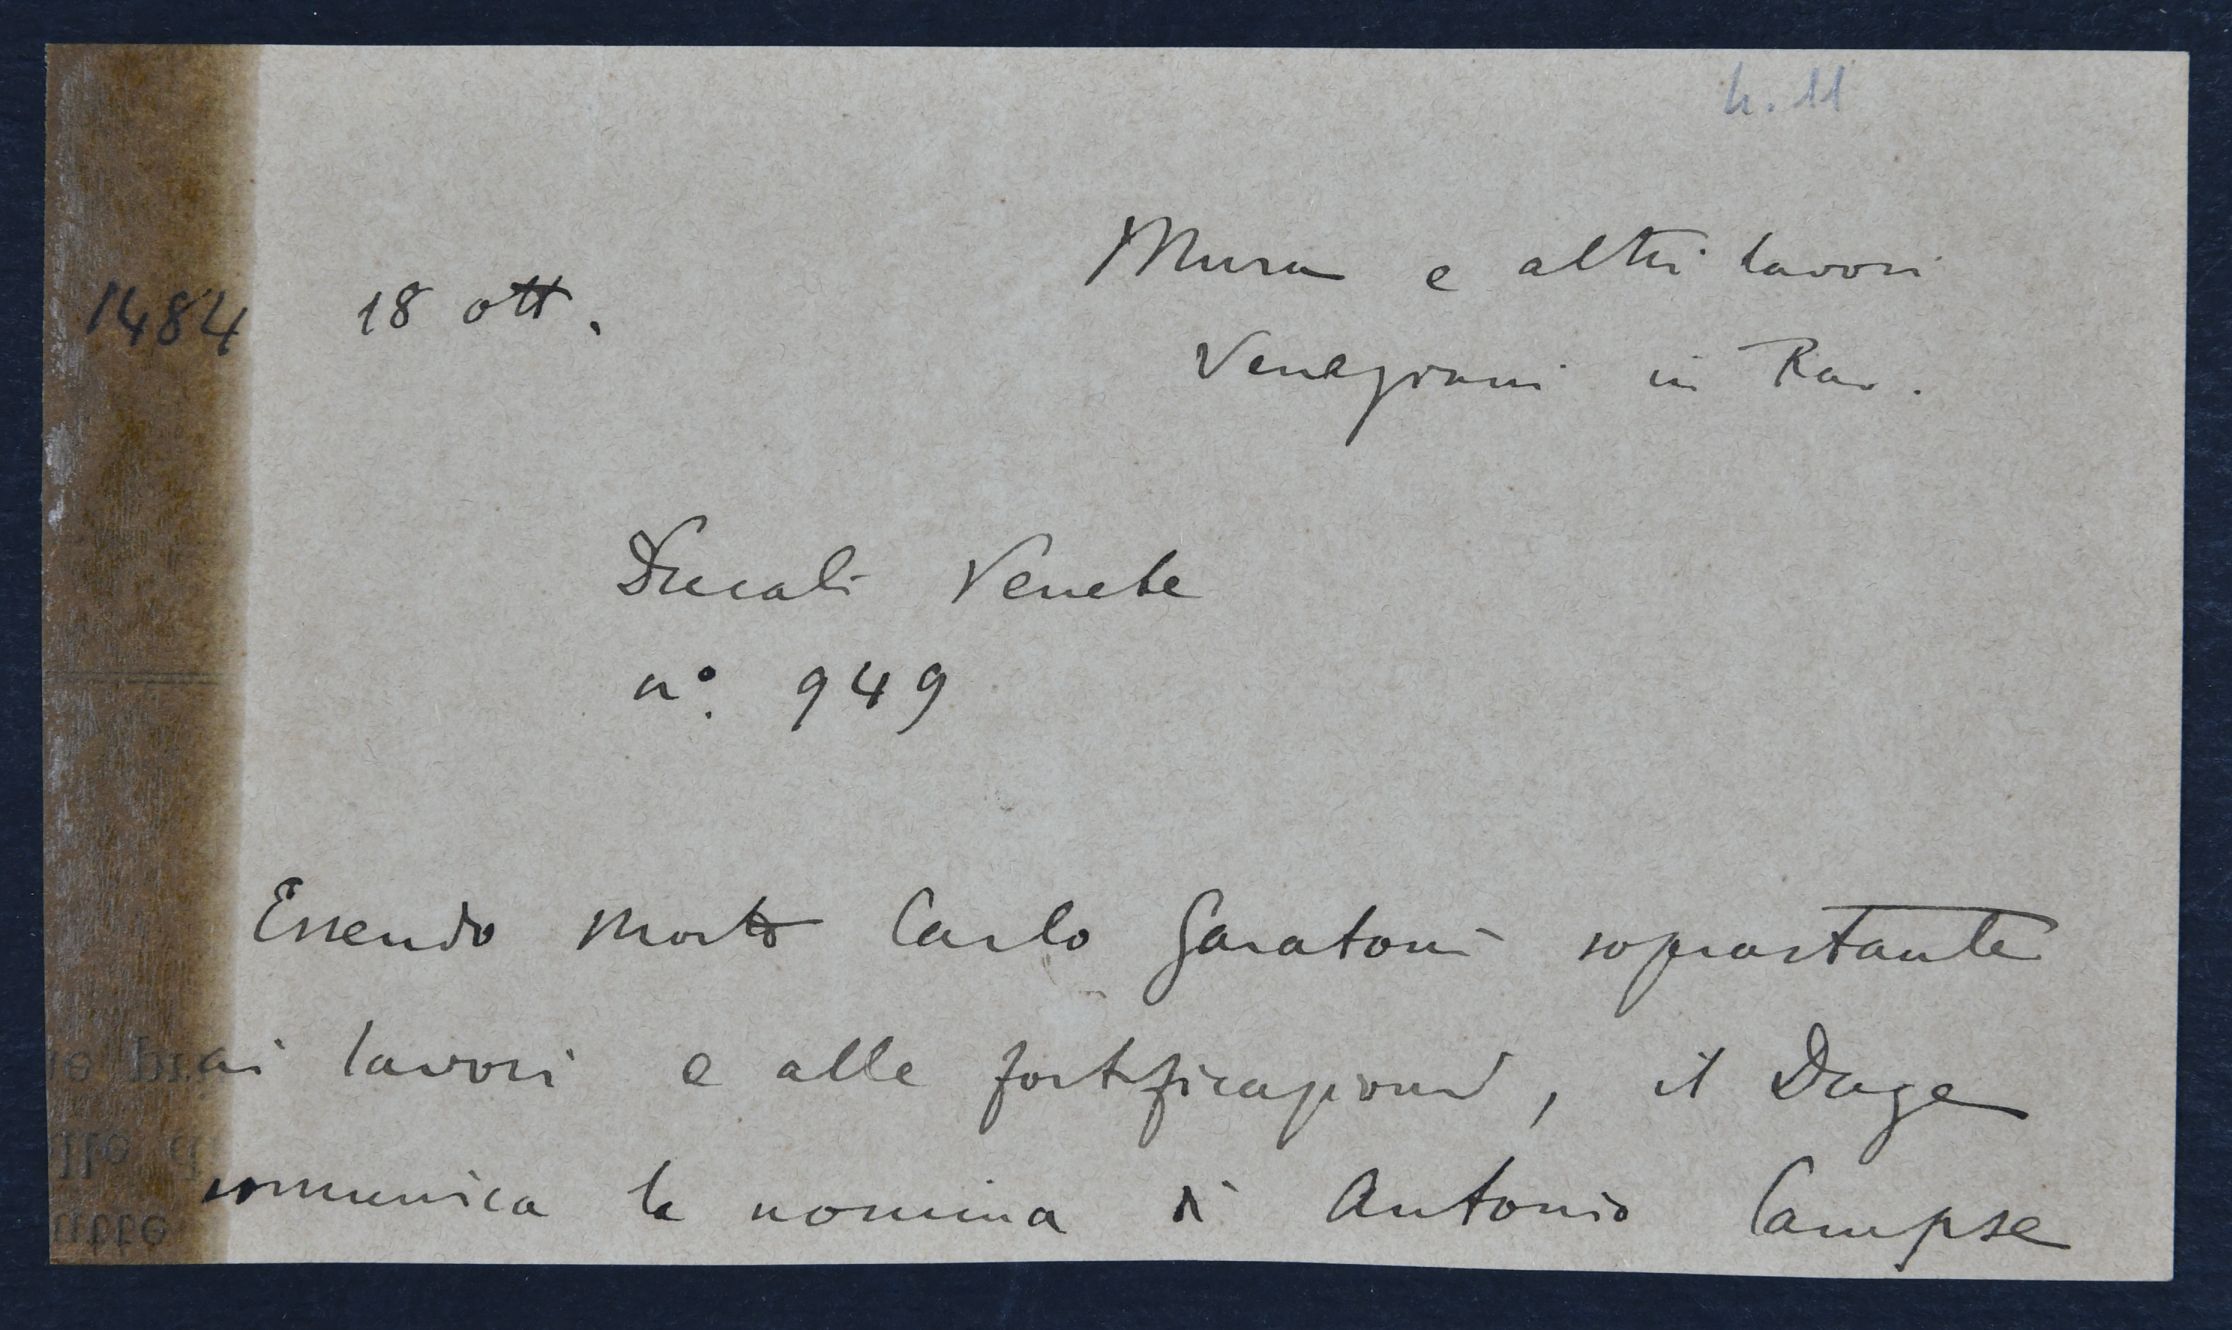 n. 11
Mura e altri lavori
1484 18 ott.
Veneziani in Rav.
Ducali Venete
n°. 949
Essendo morto Carlo Garatoni soprastante
ai lavori e alle fortificazioni, il Doge
comunica la nomina di Antonio Campse